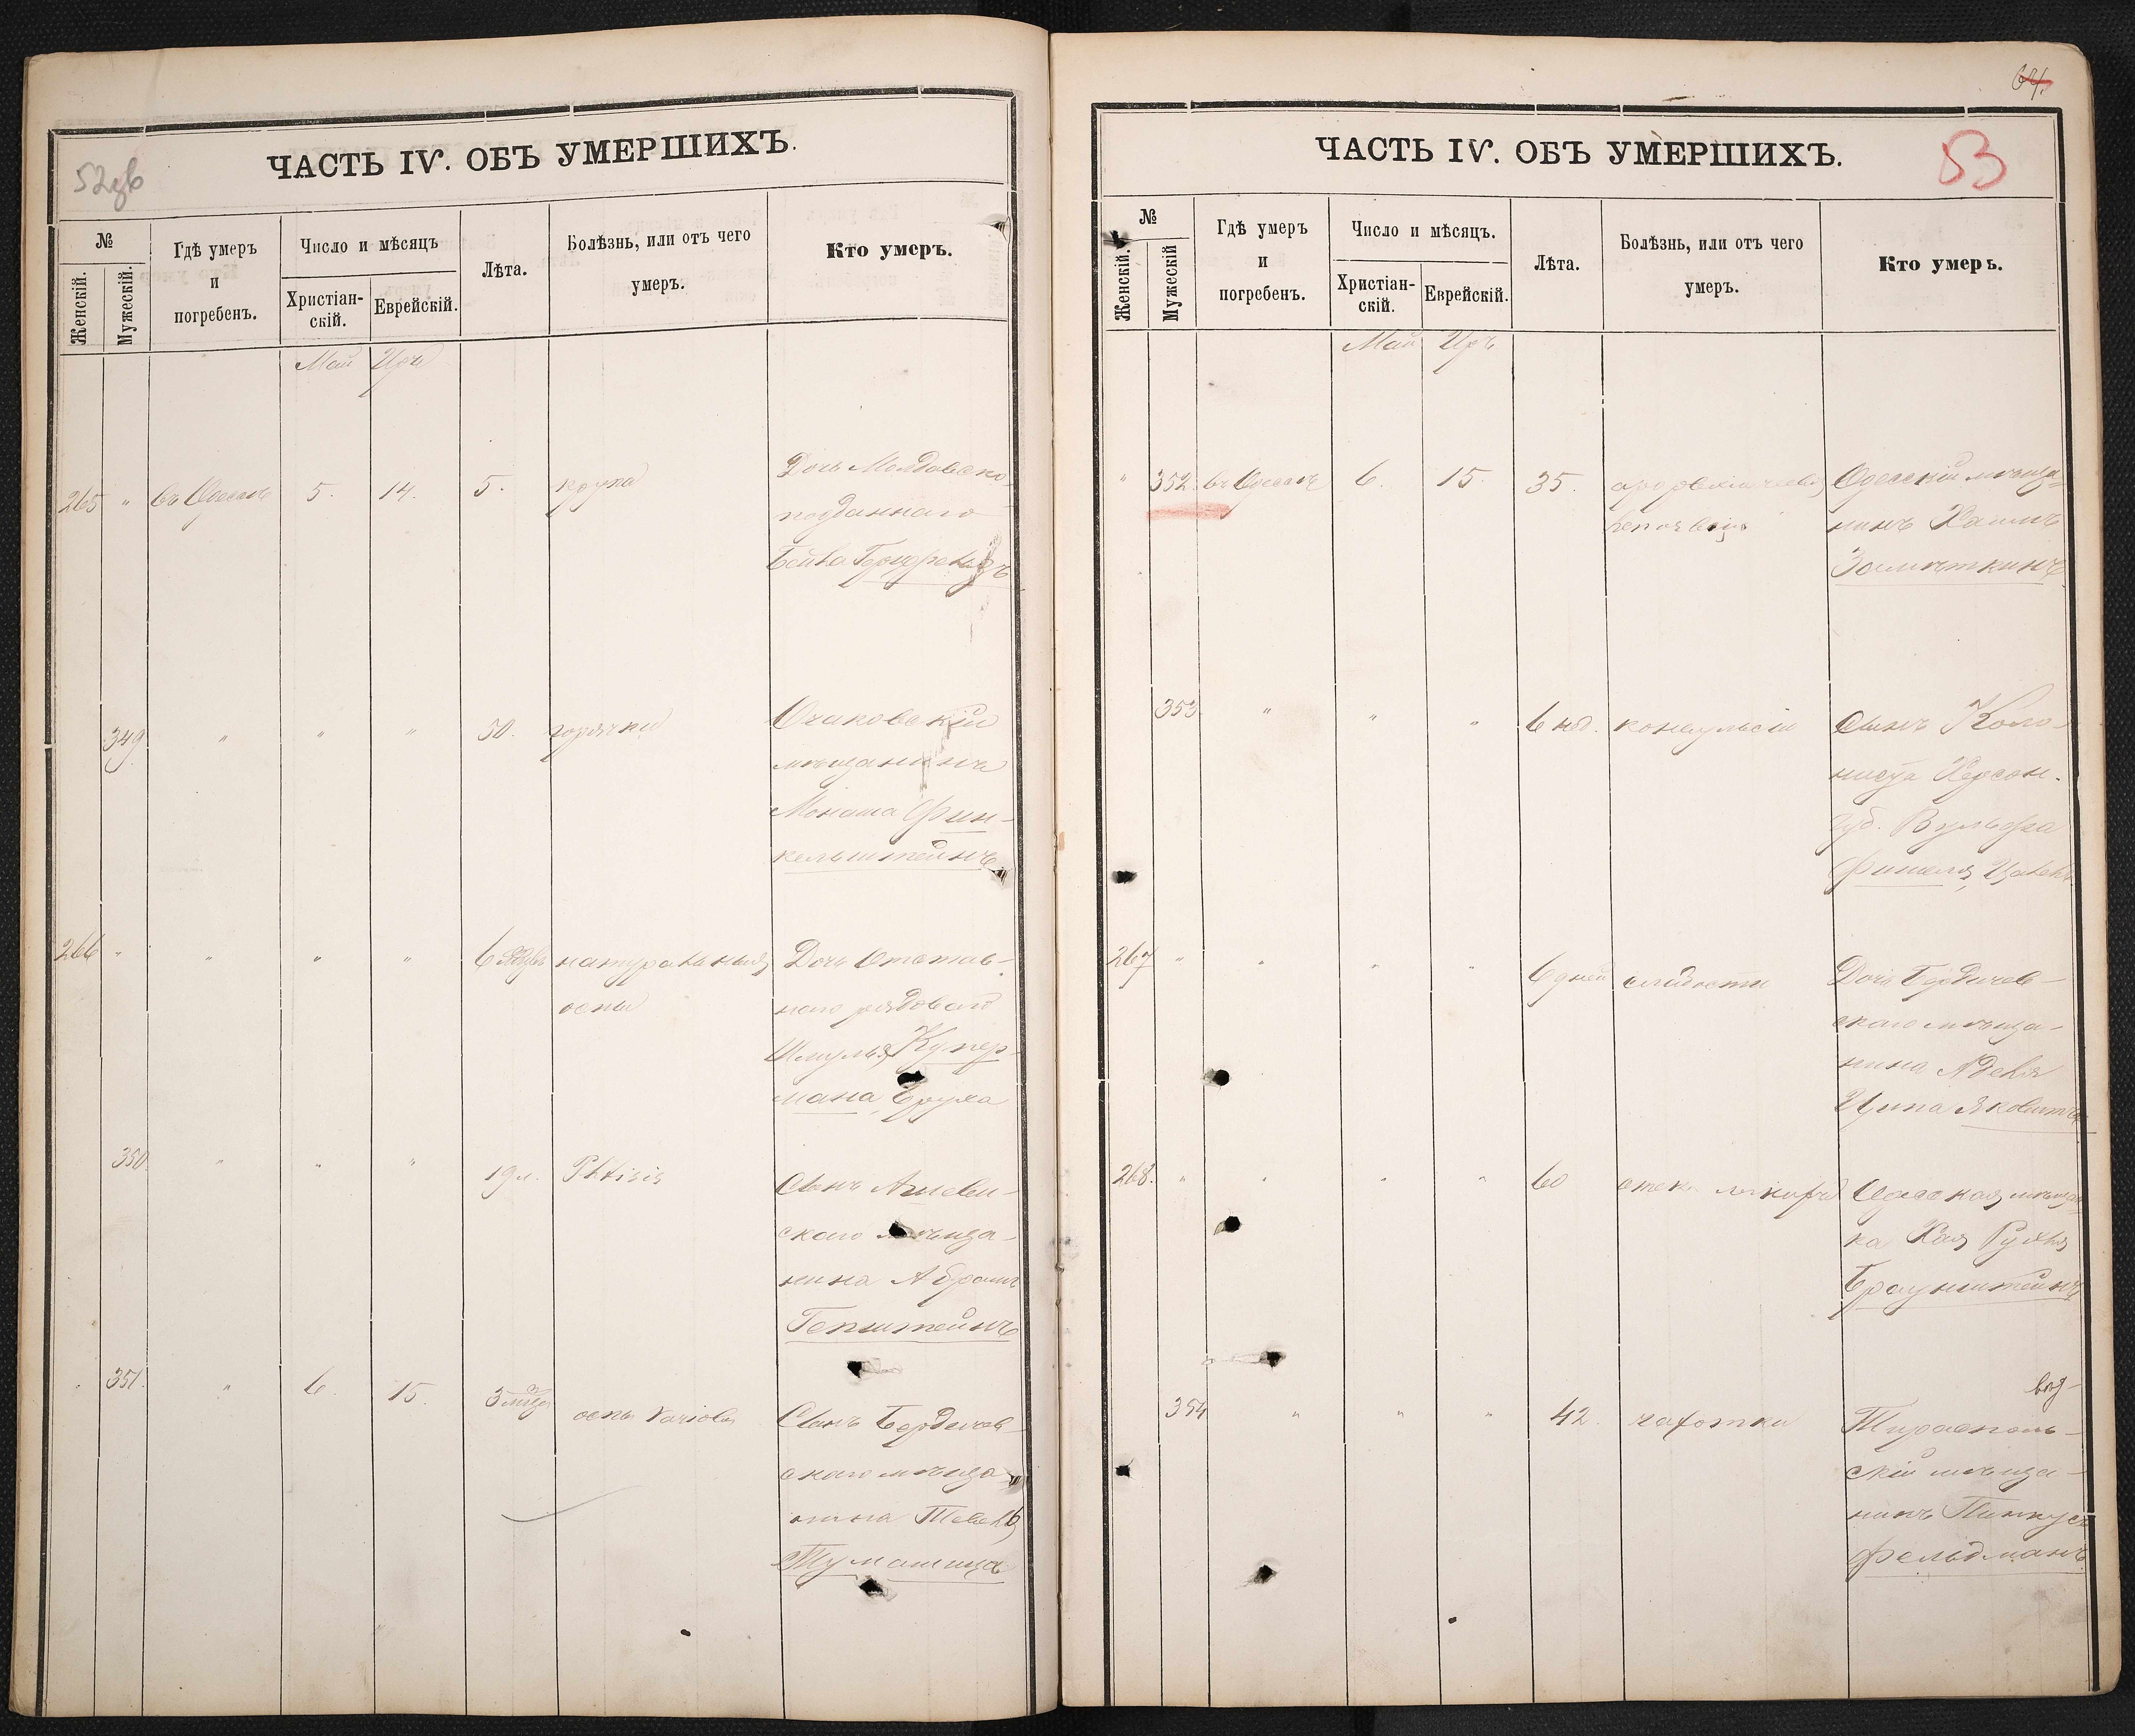 52зв
ЧАСТЬ IV. ОБЪ УМЕРШИХЪ.
№
Женскій.
Мужескій.
Гдѣ умеръ
и
погребенъ.
Число и мѣсяцъ
Христіан-
скій.
Еврейскій.
Лѣта.
Болѣзнь, или отъ чего
умеръ.
Кто умеръ.
Май Іръ
265 " въ Одессѣ 5. 14. 5. крупа Дочь Молдавско-
подданнаго
Бейла
349 " " " 50. горячки Очаковскій
мѣщанинъ
Монаша Фин-
кельштейнъ
266 " " " " 6 натуральныя Дочь Отстав-
оспы наго рядоваго
Шмуля Купер-
мана, Бруха
350 " " " 19 л. Phtisis Сынъ
скаго мѣща-
нина Абрамъ
Гепштейнъ
351. " 6. 15. 3 оспы Variola Сынъ Бердичев-
скаго мѣща-
нина
64.
53
ЧАСТЬ IV. ОБЪ УМЕРШИХЪ.
№
Женскій.
Мужескій
Гдѣ умеръ
и
погребенъ.
Число и мѣсяцъ.
Христіан-
скій.
Еврейскій.
Лѣта.
Болѣзнь, или отъ чего
умеръ.
Кто умеръ.
Май Іръ
" 352. въ Одессѣ 6. 15. 35. Одесскій мѣща-
нинъ Хаимъ
Замѣткинъ
353 " " " 6 нед. конвульсіи Сынъ Коло-
ниста Херсон.
губ. Вульфа
Фишеля,
267 " " " " 6 дней слабости Дочь Бердичев-
скаго мѣща-
нина
Ципа Яковит
268. " " " " 60 отека Одесская мѣщан-
ка Хая Рухля
Браунштейнъ
354 " " " 42. чахотки Тирасполь-
скій мѣща-
нинъ Пинкусъ
Фельдманъ